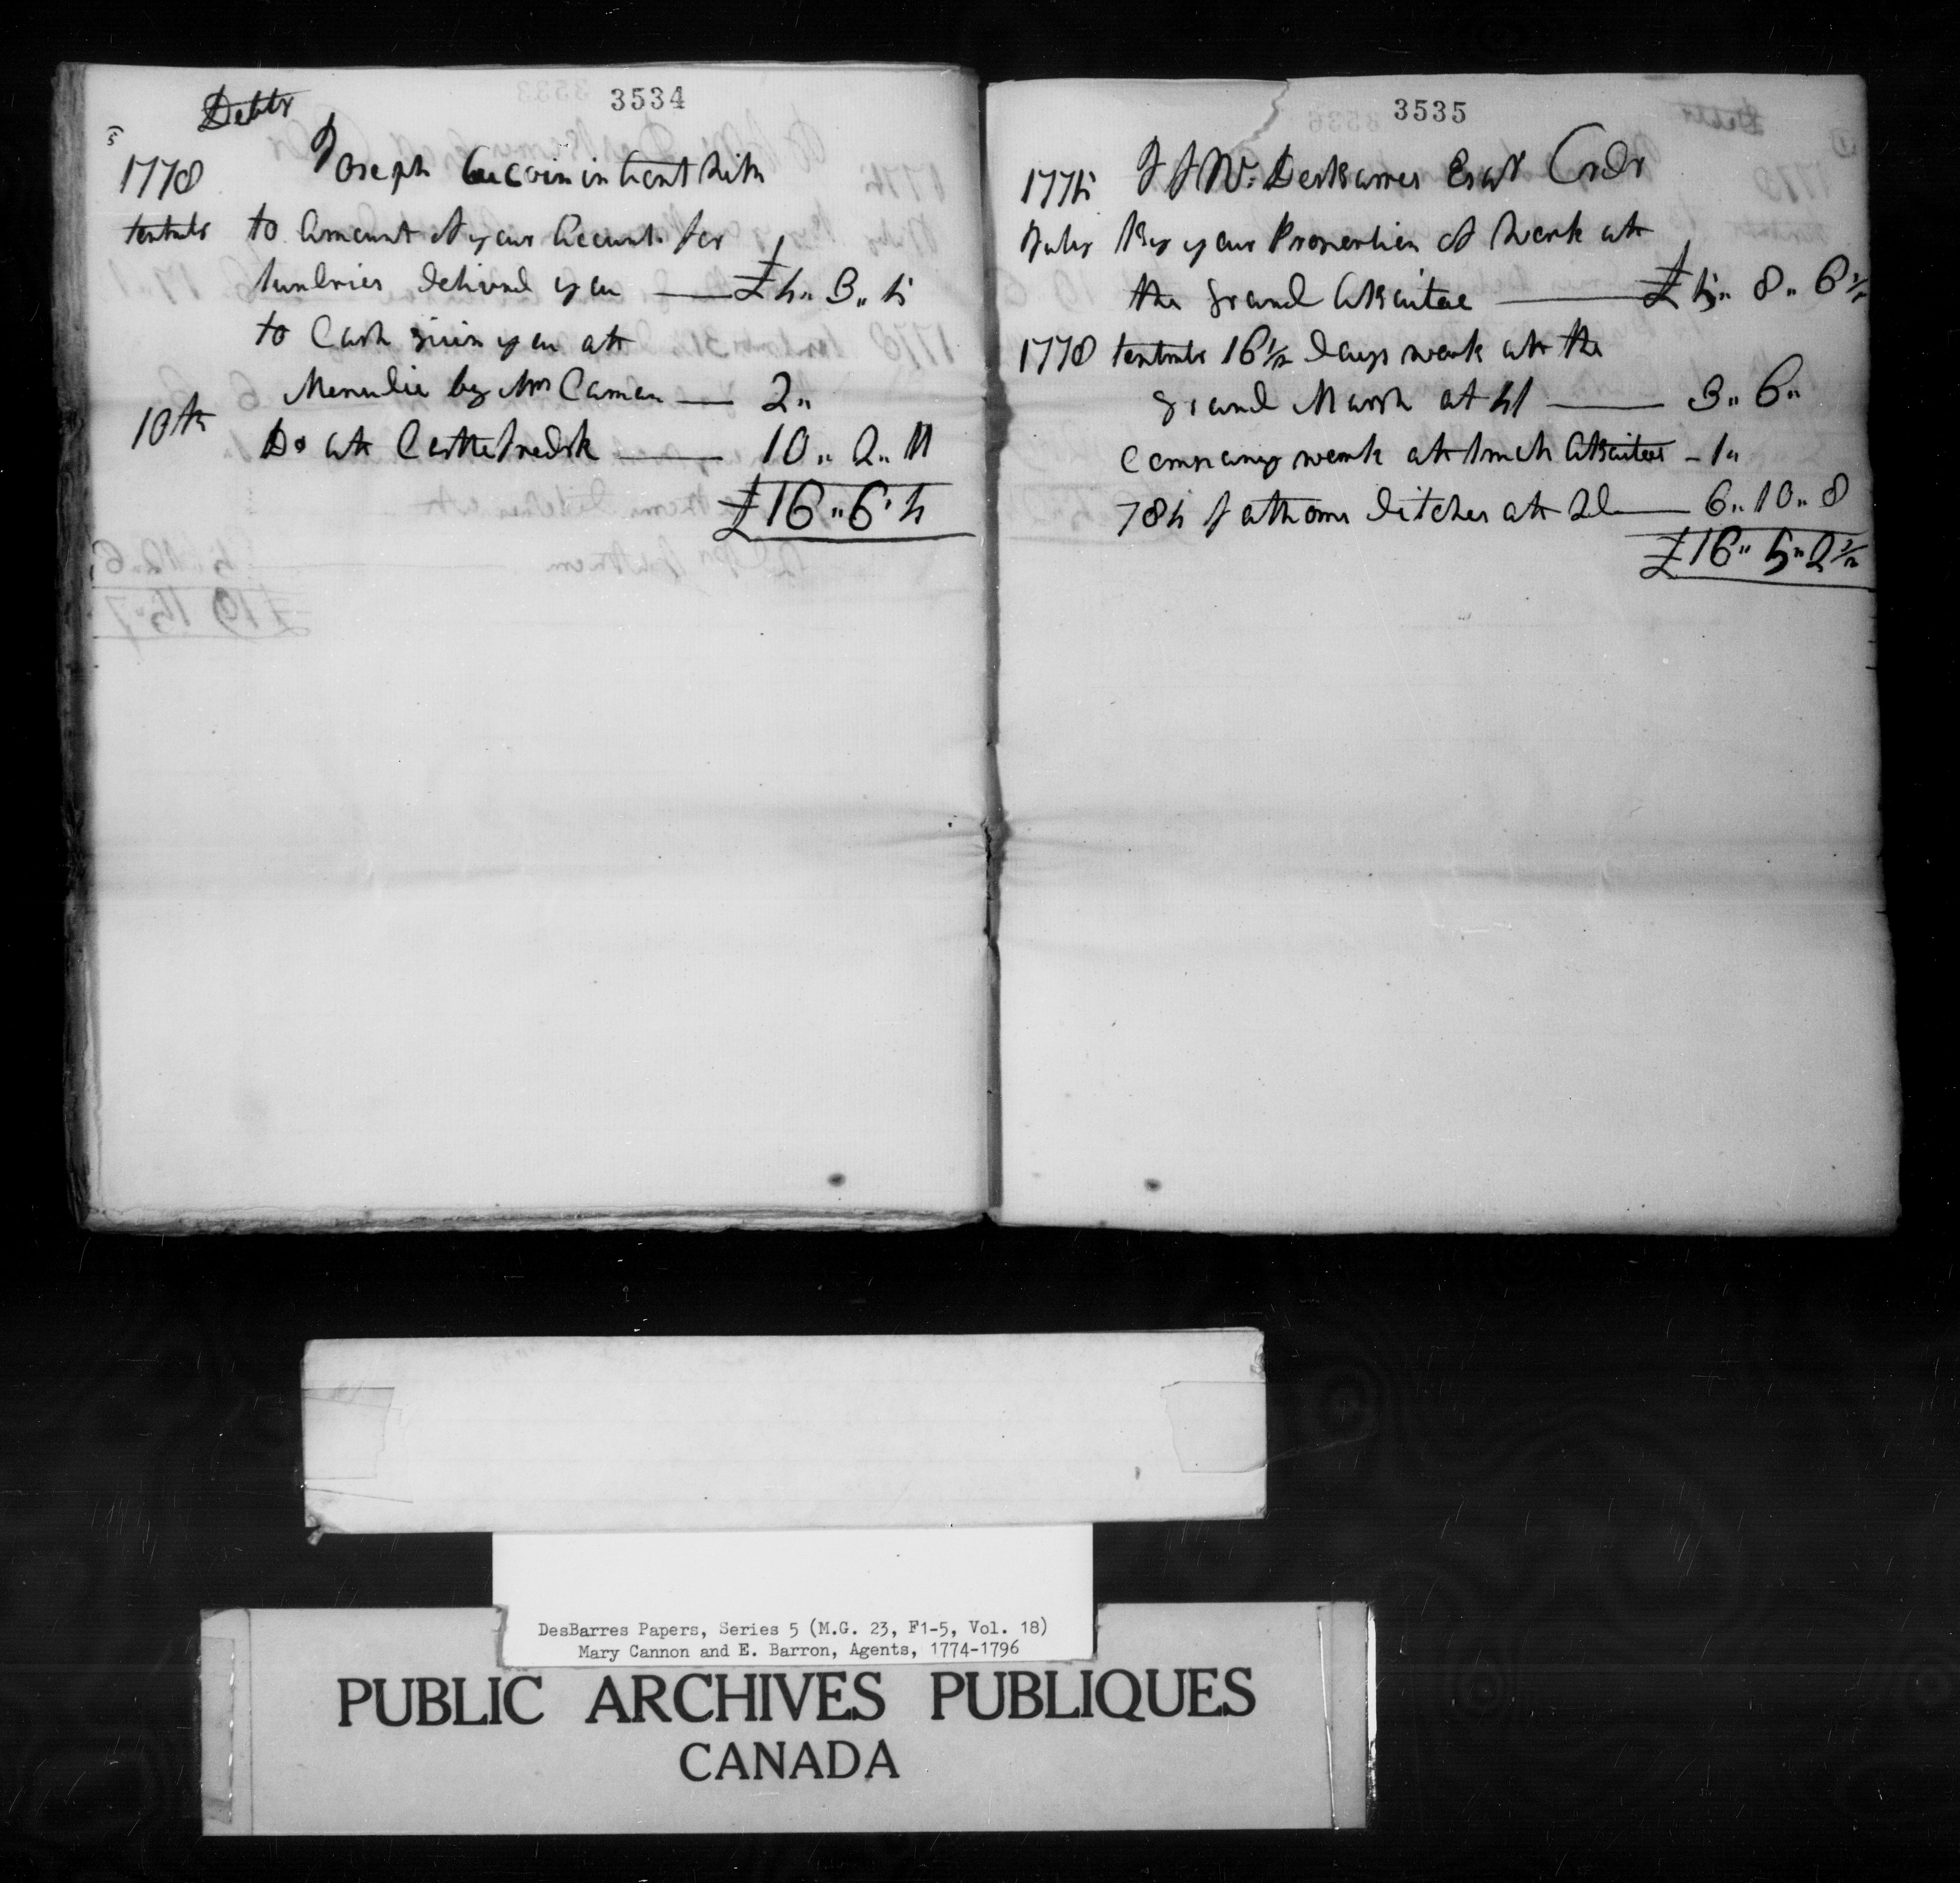 Debtr
3534
1778 Joseph in Cont With
to Amount of your Account for
sundries delivrd you — £4,, 3,, 5
to Cash given you at
Menudie by Mrs Cannan — 2,,
10th Do at Castlefredrk — 10,, 2,, 11
£16,,6,,4
3535
1775 J F W: Desbarres Esqr Credr
July By your Proportion of Work at
the Grand Abaitoe — £5,, 8,, 6½
1778 16½ days work at the
Grand Marsh at 4/ — 3,, 6,,
Company work at Abaitoe — 1,,
784 fathoms ditches at 2d — 6,, 10,, 8
£16,, 5,, 2½
DesBarres Papers, Series 5 (M.G. 23, F1-5, Vol. 18)
Mary Cannon and E. Barron, Agents, 1774-1796
PUBLIC ARCHIVES PUBLIQUES
CANADA